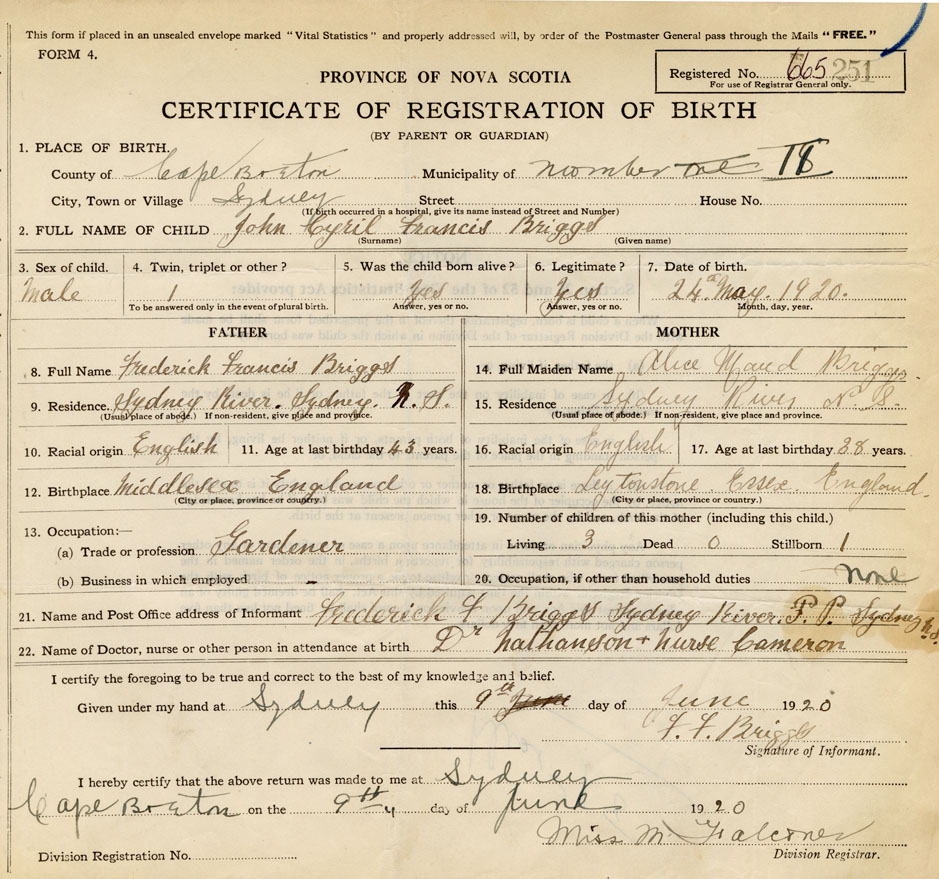 This form if placed in an unsealed envelope marked "Vital Statistics" and properly addressed will, by order of the Postmaster General pass through the Mails "FREE."
FORM 4.
Registered No. 665 251
For use of Registrar General only.
PROVINCE OF NOVA SCOTIA
CERTIFICATE OF REGISTRATION OF BIRTH
(BY PARENT OR GUARDIAN)
1. PLACE OF BIRTH.
County of Cape Breton Municipality of number one 18
City, Town or Village Sydney Street House No.
(If birth occurred in a hospital, give its name instead of Street and Number)
2. FULL NAME OF CHILD John Cyril Francis Briggs
(Surname) (Given name)
3. Sex of child. 4. Twin, triplet or other? 5. Was the child born alive? 6. Legitimate? 7. Date of birth.
Male 1 Yes Yes 24 May. 1920.
To be answered only in the event of plural birth. Answer, yes or no. Answer, yes or no. Month, day, year.
FATHER MOTHER
8. Full Name Frederick Francis Briggs
9. Residence. Sydney River. Sydney. N. S.
(Usual place of abode.) If non-resident, give place and province.
10. Racial origin English 11. Age at last birthday 43 years.
12. Birthplace Middlesex England
(City or place, province or country.)
13. Occupation:—
(a) Trade or profession Gardener
(b) Business in which employed -
14. Full Maiden Name Alice Maud Briggs.
15. Residence Sydney River N. S.
(Usual place of abode.) If non-resident, give place and province.
16. Racial origin English 17. Age at last birthday 38 years.
18. Birthplace Leytonstone. Essex. England.
(City or place, province or country.)
19. Number of children of this mother (including this child.)
Living 3 Dead 0 Stillborn 1
20. Occupation, if other than household duties none
21. Name and Post Office address of Informant Frederick F Briggs Sydney River. P. P. Sydney N.S.
22. Name of Doctor, nurse or other person in attendance at birth Dr Nathanson + Nurse Cameron
I certify the foregoing to be true and correct to the best of my knowledge and belief.
Given under my hand at Sydney this 9th June day of June 1920
F. F. Briggs
Signature of Informant.
I hereby certify that the above return was made to me at Sydney
Cape Breton on the 9th day of June 1920
Miss M. Falconer
Division Registration No. Division Registrar.